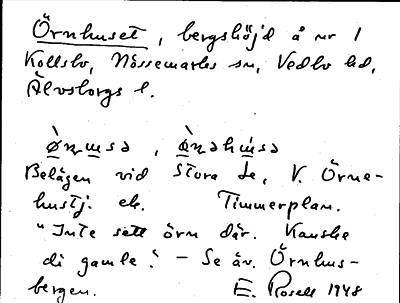 Örnhuset, bergshöjd å nr 1
Kollslv, Nössemarks sn, Vedbo hd,
Älvsborgs l.
Belägen vid Stora Le, V. Örne-
hustj. ek. Timmerplan.
"Inte sett örn där. Kanske
di gamle." - Se äv. Örnhus-
bergen. E. Rosell 1948